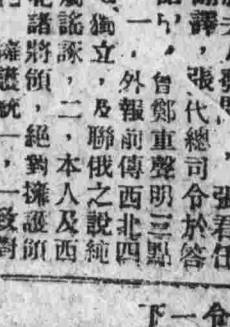 張君任
譯，張代總司令於答
，曾鄭重聲明三點
一，外報前傳西北四
獨立，及聯俄之說純
謠諑，二，本人及西
諸將領，絕對擁護領
擁護統一，一致對
令一下